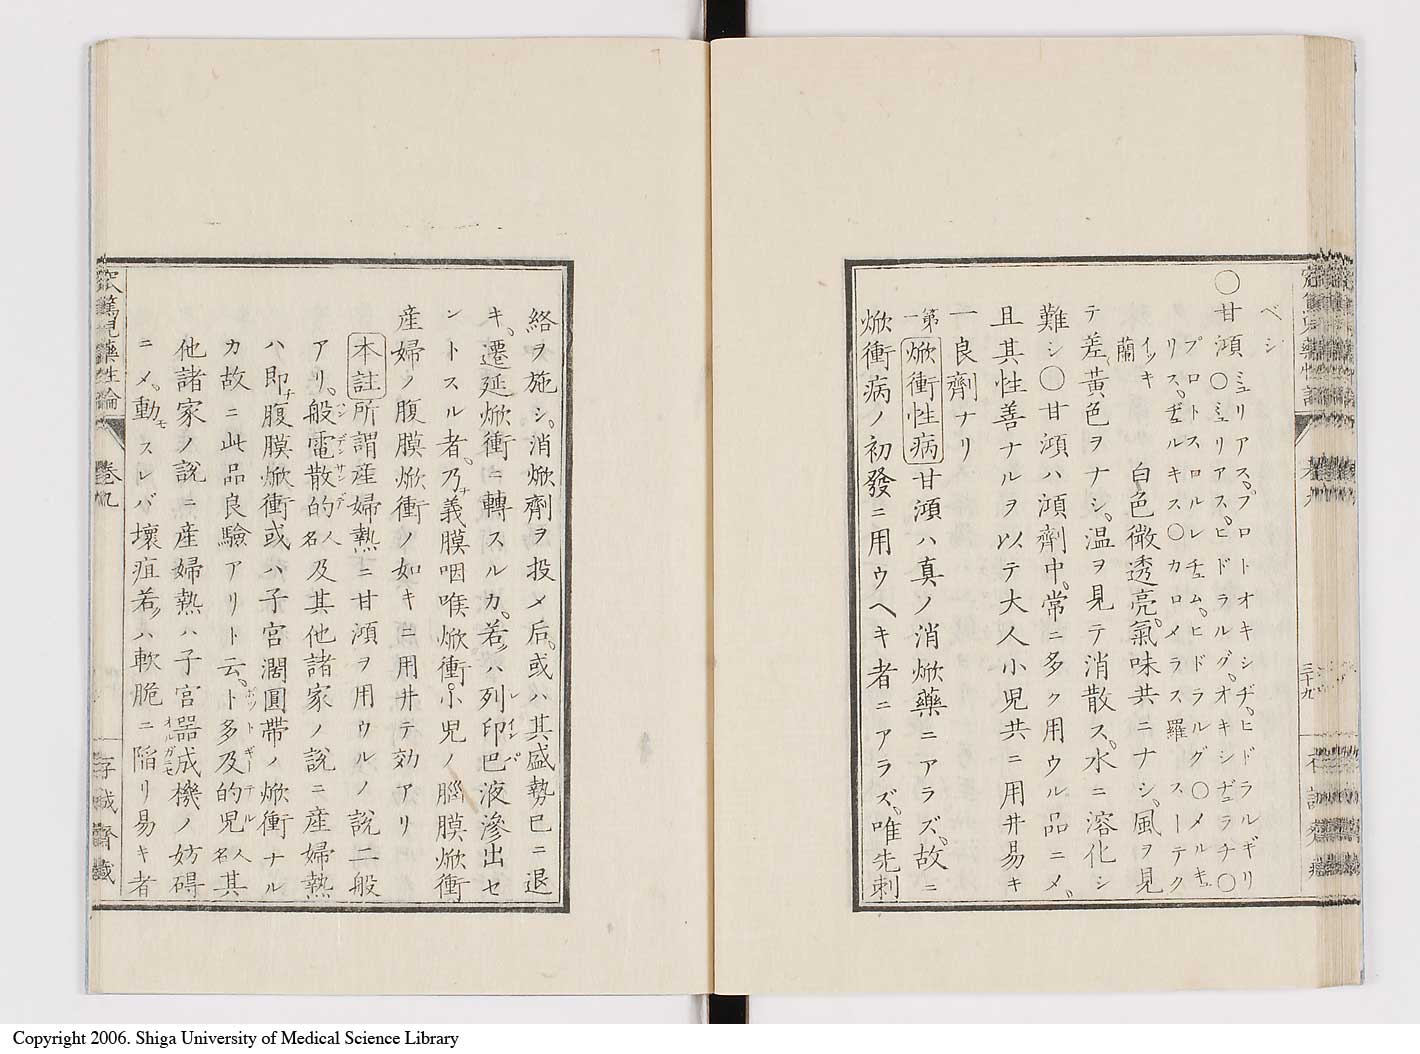 ベシ
○甘澒ミュリアス、プロトオキシヂ、ヒドラルギリ
○ミュリアス、ヒドラルグ、オキシヂュラチ○
プロトスロルレチュム、ヒドラルグ○メルキュ
リス、ヂュルキス○カロメラス羅 スーテク
イッキ蘭
白色微透亮、氣味共ニナシ、風ヲ見
テ差黄色ヲナシ、温ヲ見テ消散ス、水ニ溶化シ
難シ○甘澒ハ澒劑中、常ニ多ク用ウル品ニメ、
且其性善ナルヲ以テ大人小児共ニ用井易キ
一良劑ナリ
第一焮衝性病 甘澒ハ真ノ消焮藥ニアラズ、故ニ
焮衝病ノ初發ニ用ウヘキ者ニアラズ、唯先刺
絡ヲ施シ、消焮劑ヲ投メ后、或ハ其盛勢已ニ退
キ、遷延焮衝ニ轉スルカ、若ハ列印巴液滲出セ
ントスル者、乃義膜咽喉焮衝、小児ノ腦膜焮衝
産婦ノ腹膜焮衝ノ如キニ用井テ効アリ
本註 所謂産婦熱ニ甘澒ヲ用ウルノ説二般
アリ、般電散的人名及其他諸家ノ説ニ産婦熱
ハ即腹膜焮衝或ハ子宮濶圓帯ノ焮衝ナル
カ故ニ此品良驗アリト云、卜多及的児人名其
他諸家ノ説ニ産婦熱ハ子宮器成機ノ妨碍
ニメ、動モスレバ壊疽若ハ軟脆ニ陥リ易キ者
窊篤児藥性論
卷九
三十九
存誠齋藏
Copyright 2006. Shiga University of Medical Science Library